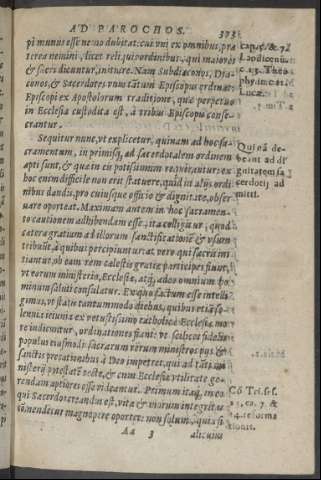 AD PAROCHOS. 373
pi munus esse nemo dubitat: cui vni ex omnibus, præ
terea nemini, licet reliqui ordinibus, qui maiores
& sacri dicuntur, initiare. Nam Subdiaconos, Dia-
conos, & Sacerdotes vnus tantùm Episcopus ordinat:
Episcopi ex Apostolorum traditione, quæ perpetuò
in Ecclesia custodita est, à tribus Episcopis conse-
crantur.
Sequitur nunc, vt explicetur, quinam ad hoc sa-
cramentum, in primisq́; ad sacerdotalem ordinem
apti sunt, & quæ in eis potissimùm requirantur: ex
hoc enim difficile non erit statuere, quid in alijs ordi
nibus dandis, pro cuiusque officio & dignitate, obser
uare oporteat. Maximam autem in hoc sacramen-
to cautionem adhibendam esse, ita colligitur, quòd
cætera gratiam ad illorum sanctificationẽ & vsum
tribuũt à quibus percipiuntur: at verò qui sacris ini
tiantur, ob eam rem cælestis gratiæ participes fiunt,
vt eorum ministerio, Ecclesiæ, atq́; adeo omnium ho
minum saluti consulatur. Ex quo factum esse intelli
gimus, vt statis tantummodo diebus, quibus etiã so-
lennia ieiunia ex vetustissimo catholicæ Ecclesiæ mo-
re indicuntur, ordinationes fiant: vt scilicet fidelis
populus eiusmodi sacrarum rerum ministros pijs &
sanctis precationibus à Deo impetret, qui ad tanti mi
nisterij potestatẽ rectè, & cum Ecclesiæ vtilitate ge-
rendam aptiores esse videantur. Primùm itaq́; in eo,
qui Sacerdos creandus est, vitæ & morum integritas
cõmendetur magnopere oportet: non solùm, quia si
Aa 3 alicuius
cap. 5. & 7.
Laodicenũ
c. 13. Theo
phy. in cat.
Lucæ.
1. Tim. 5.
Qui ad
beant ad di
gnitatem sa
cerdotij ad
mitti.
Cõ Tri. ses.
23. ca. 7. &
14. reforma
tionis.